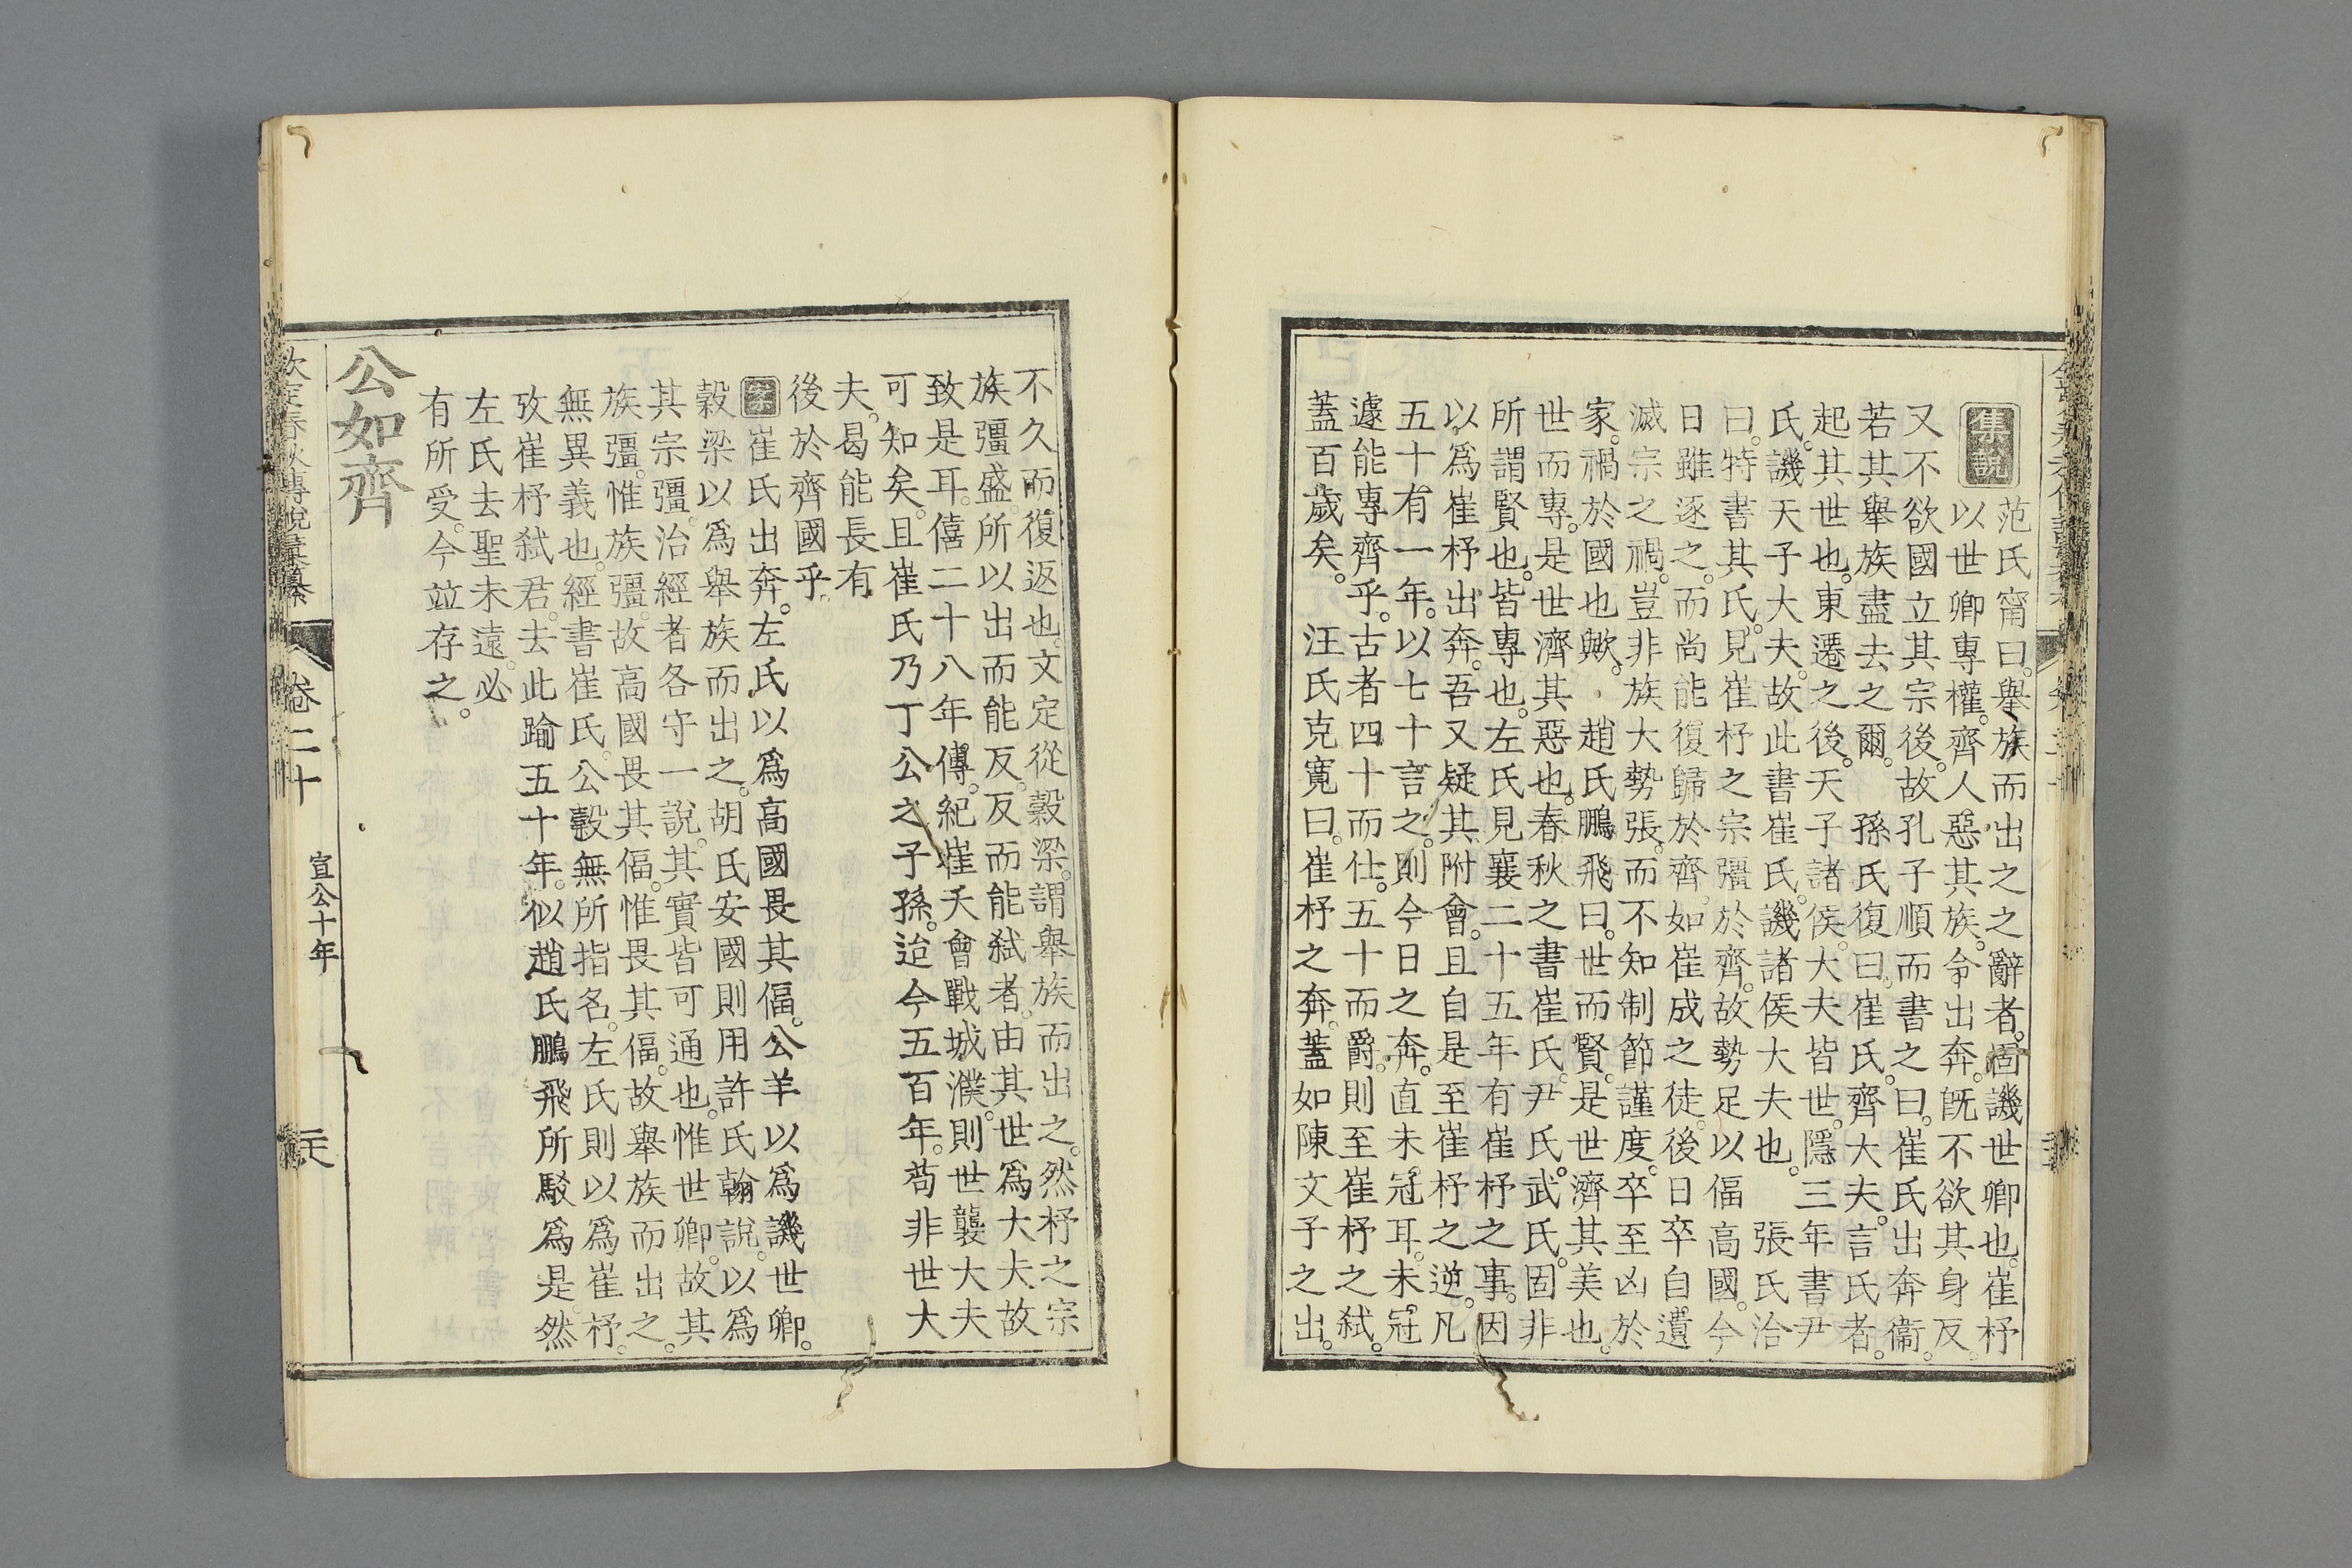 集說
范氏甯曰。舉族而出之之辭者。固譏世卿也。崔杼
以世卿專權。齊人惡其族。令出奔。既不欲其身反。
又不欲國立其宗後。故孔子順而書之曰。崔氏出奔衞。
若其舉族盡去之爾。孫氏復曰。崔氏。齊大夫。言氏者。
起其世也。東遷之後。天子諸侯。大夫皆世。隱三年書尹
氏。譏天子大夫。故此書崔氏。譏諸侯大夫也。張氏洽
曰。特書其氏。見崔杼之宗彊於齊。故勢足以偪高國。今
日雖逐之。而尚能復歸於齊。如崔成之徒。後日卒自遺
滅宗之禍。豈非族大勢張。而不知制節謹度。卒至凶於
家。禍於國也歟。趙氏鵬飛曰。世而賢。是世濟其美也。
世而專。是世濟其惡也。春秋之書崔氏。尹氏。武氏。固非
所謂賢也。皆專也。左氏見襄二十五年有崔杼之事。因
以爲崔杼出奔。吾又疑其附會。且自是至崔杼之逆。凡
五十有一年。以七十言之。則今日之奔。直未冠耳。未冠
遽能專齊乎。古者四十而仕。五十而爵。則至崔杼之弒。
蓋百歲矣。汪氏克寬曰。崔杼之奔。蓋如陳文子之出。
不久而復返也。文定從穀梁。謂舉族而出之。然杼之宗
族彊盛。所以出而能反。反而能弒者。由其世爲大夫。故
致是耳。僖二十八年傳。紀崔夭會戰城濮。則世襲大夫
可知矣。且崔氏乃丁公之子孫。迨今五百年。茍非世大
夫。曷能長有
後於齊國乎。
案崔氏出奔。左氏以爲高國畏其偪。公羊以爲譏世卿。
穀梁以爲舉族而出之。胡氏安國則用許氏翰說。以爲
其宗彊。治經者各守一說。其實皆可通也。惟世卿。故其
族彊。惟族彊。故高國畏其偪。惟畏其偪。故舉族而出之。
無異義也。經書崔氏。公穀無所指名。左氏則以爲崔杼。
攷崔杼弒君。去此踰五十年。似趙氏鵬飛所駁爲是。然
左氏去聖未遠。必
有所受。今竝存之。
公如齊
欽定春秋傳說彙纂 卷二十 宣公十年